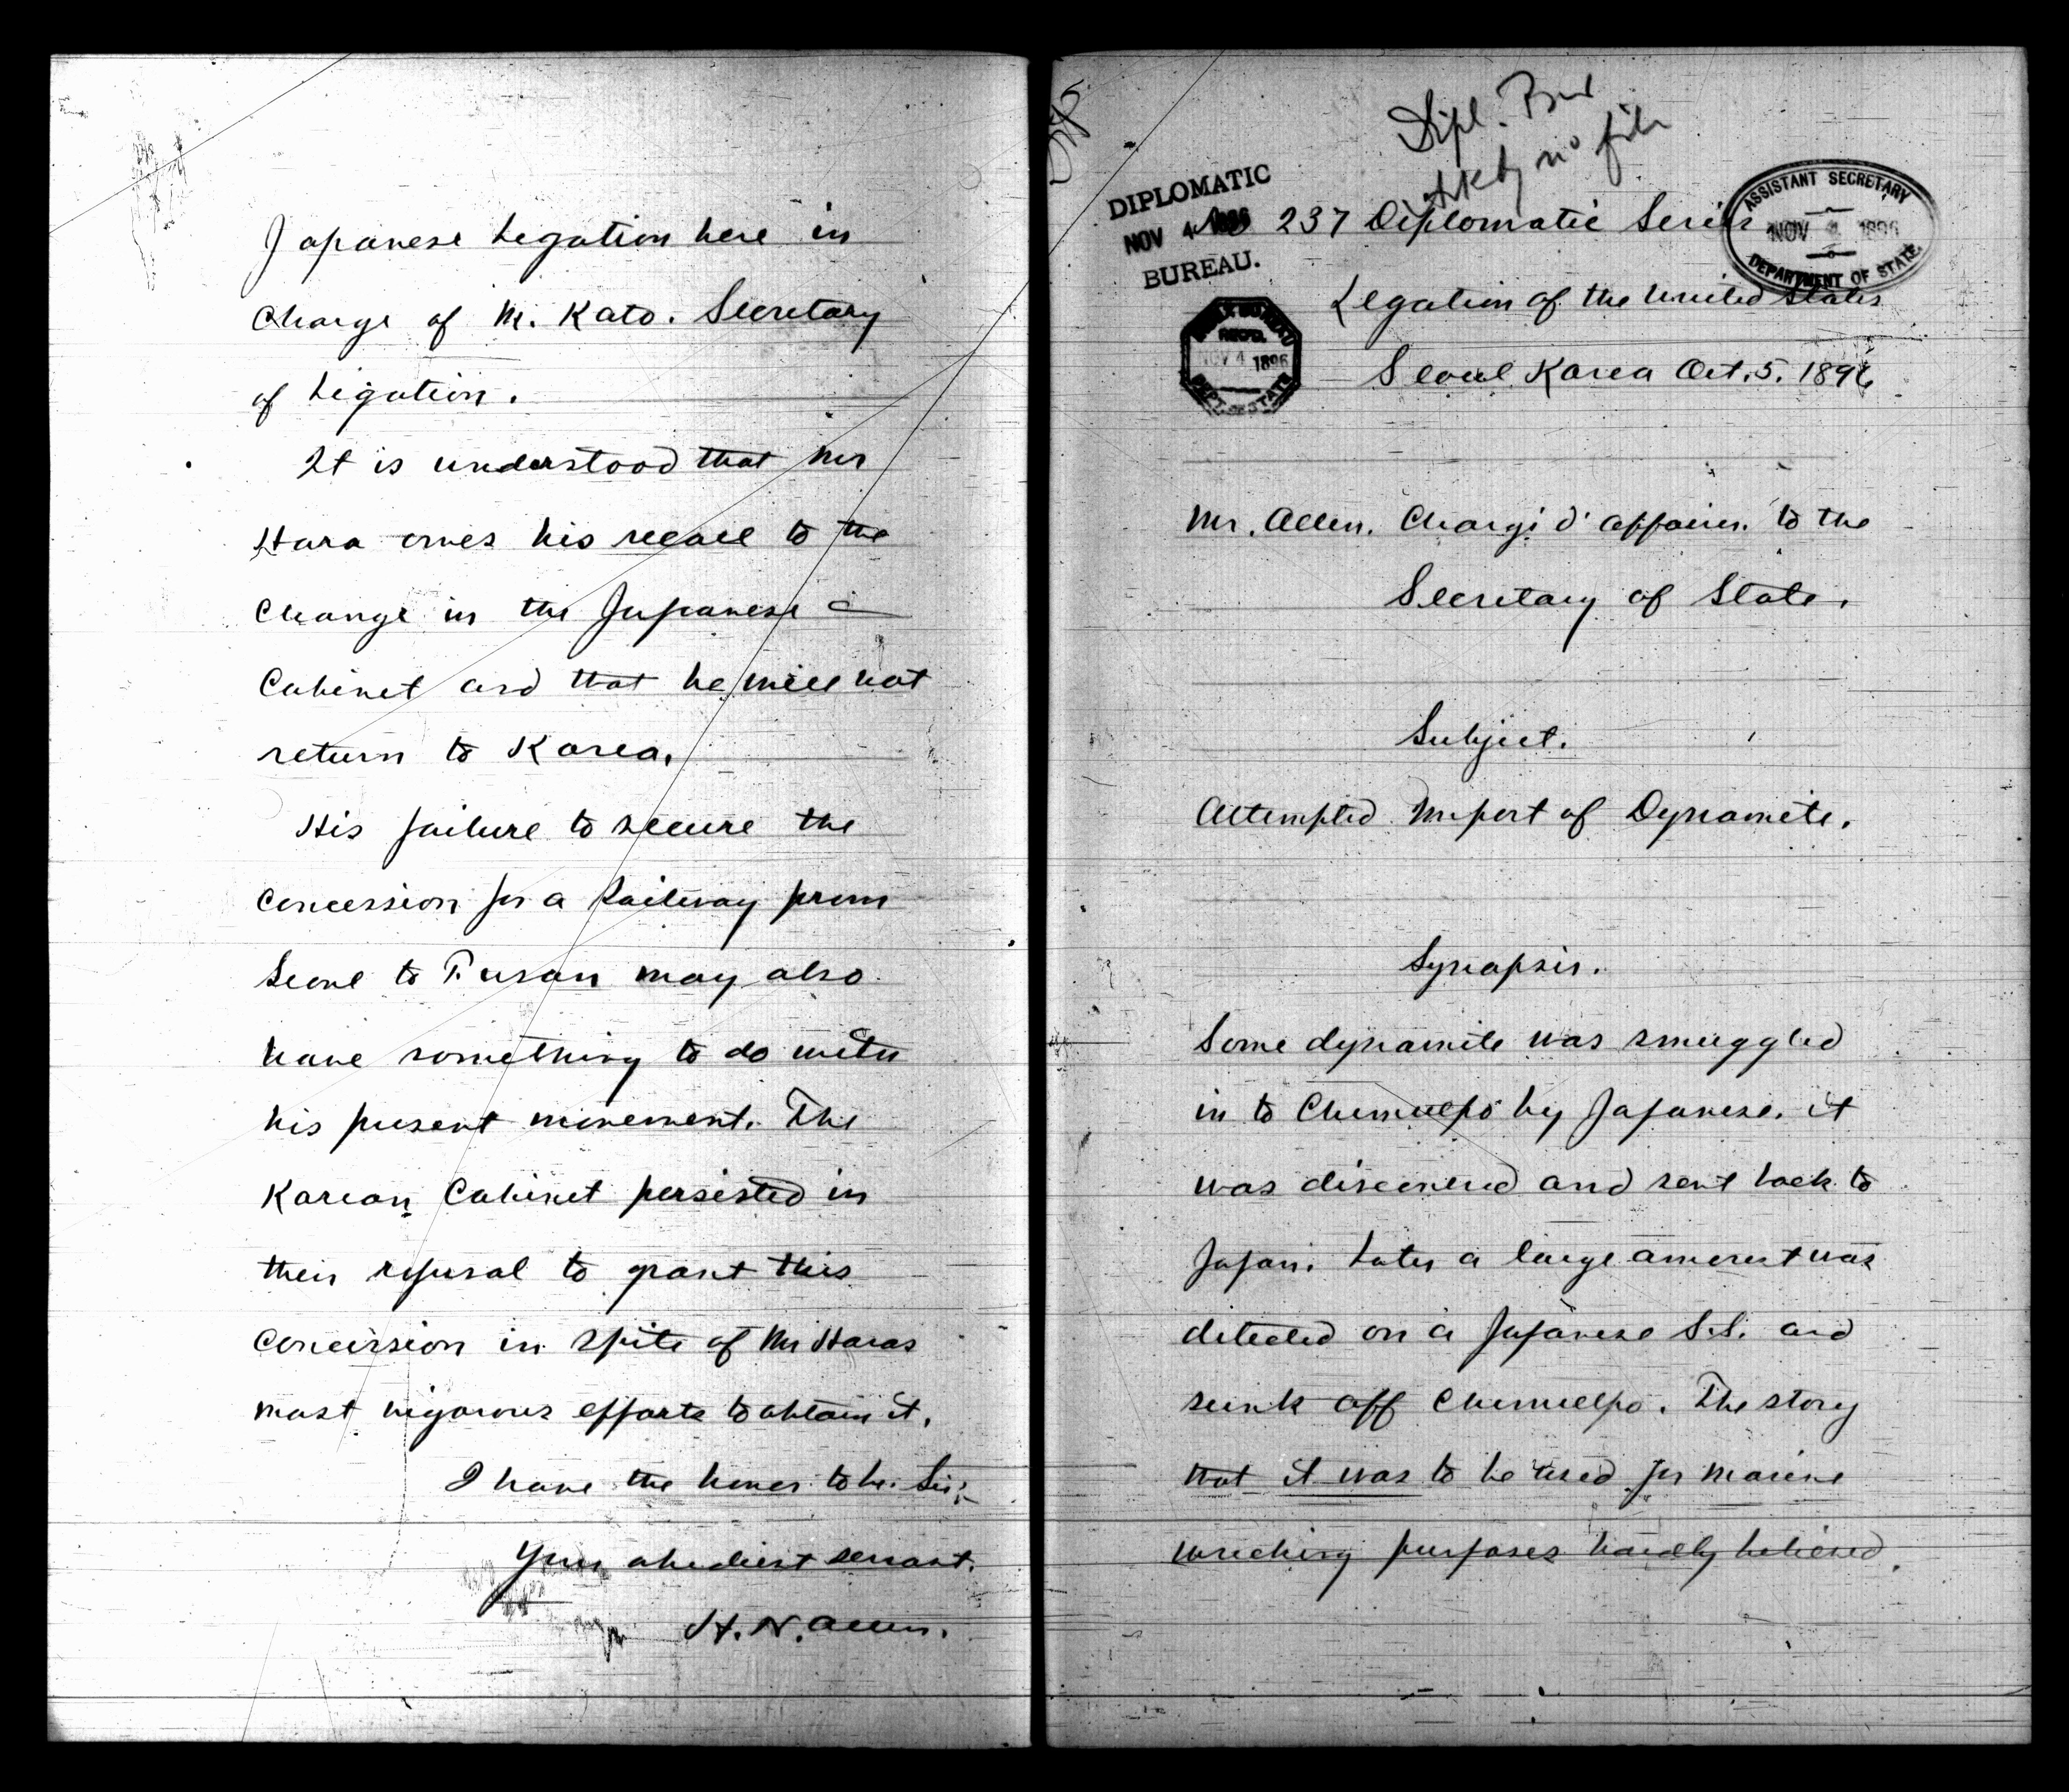 Japanese Legation here in
Charge of M. Kato. Secretary
of Legation.
It is understood that Mr
Hara owes his recall to the
Change in the Japanese
Cabinet and that he will not
return to Korea.
His failure to secure the
Concession for a Railway from
Seoul to Fusan may also
have something to do with
his present movement. The
Korean Cabinet persisted in
their refusal to grant this
Concession in spite of Mr Haras
most vigorous efforts to obtain it.
I have the honor to be. Sir;
Your obedient servant.
H. N. Allen.
Dipl. Bu
no file
DIPLOMATIC
NOV 4 1896
BUREAU.
ASSISTANT SECRETARY
NOV 4 1896
DEPARTMENT OF STATE
No 237 Diplomatic Series
Legation of the United States
BUREAU
REC'D.
NOV 4 1896
DEPT. OF STATE
Seoul Korea Oct. 5. 1896
Mr. Allen. Chargé d' affaires. to the
Secretary of State.
Subject.
Attempted Import of Dynamite.
Synopsis.
Some dynamite was smuggled
in to Chemulpo by Japanese. it
was discovered and sent back to
Japan. Later a large amount was
detected on a Japanese S.S. and
sunk off Chemulpo. The story
that it was to be used for marine
wrecking purposes hardly believed.